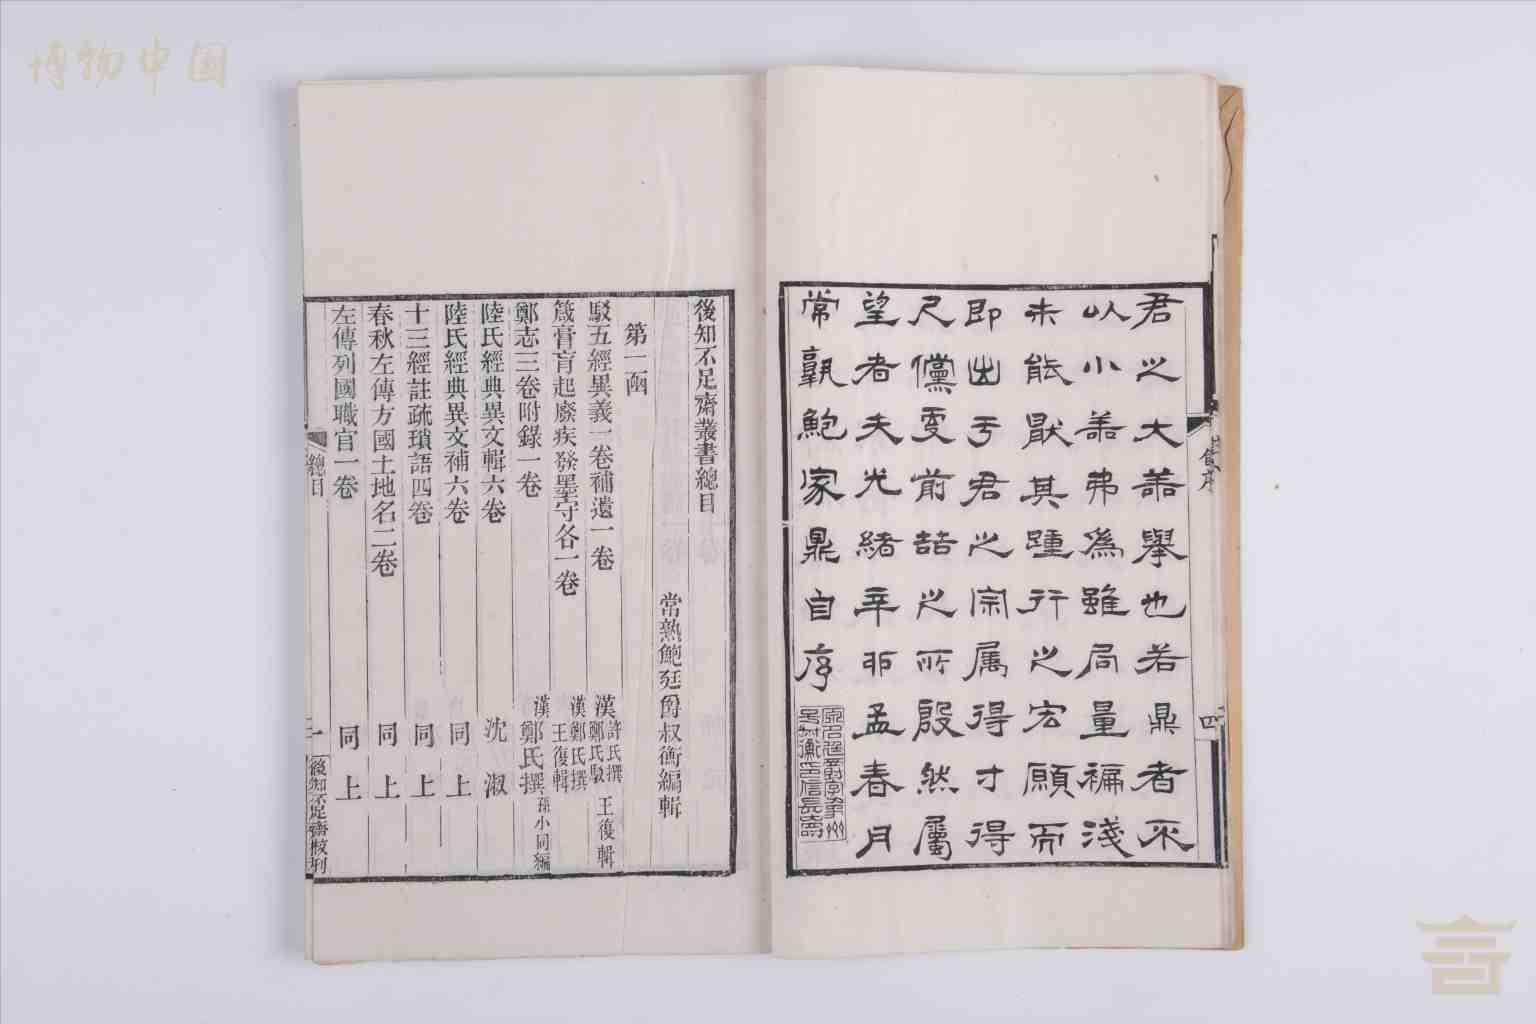 博物中国
君之大善舉也若鼎者不
以小善弗為雖局量褊淺
未能猒其踵行之宏願而
即出于君之宗屬得寸得
尺儻更前喆之所殷然屬
望者夫光緒辛卯孟春月
常熟鮑家鼎自序
四
後知不足齋叢書總目
常熟鮑廷爵叔衡編輯
第一函
駮五經異義一卷補遺一卷 漢許氏撰鄭氏駮 王復輯
箴膏肓起廢疾發墨守各一卷 漢鄭氏撰王復輯
鄭志三卷附錄一卷 漢鄭氏撰孫小同編
陸氏經典異文輯六卷 沈淑
陸氏經典異文補六卷 同上
十三經註疏瑣語四卷 同上
春秋左傳方國土地名二卷 同上
左傳列國職官一卷 同上
總目 一 後知不足齋校刊